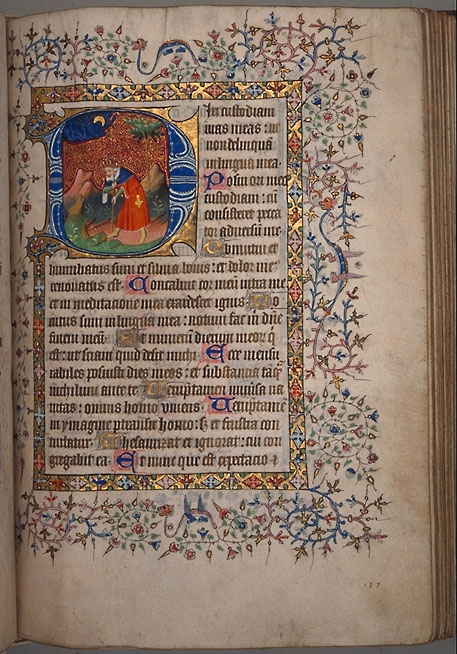 Dixi custodiam
uias meas ut
non delinquā
in lingua mea.
Posui ori meo
custodiam: cū
consisteret pecca
tor aduersum me.
Obmutui et
humiliatus sum et silui a bonis: et dolor me
renouatus est. Concaluit cor meū intra me:
et in meditacione mea exardescet ignis. Lo
cutus sum in lingua mea: notum fac m dn̄e
finem meū. Et numerū dierum meorū q
est: ut sciam quid desit michi. Ecce mensu
rabiles posuisti dies meos: et substantia tāq̄
nichilum ante te. Ueruptamen uniuersa ua
nitas: omnis homo uiuens. Ueruptame
in ymagine ptransit homo: s et frustra con
turbatur. Thesaurizat et ignorat: cui con
gregabit ea. Et nunc que est expectacio
157